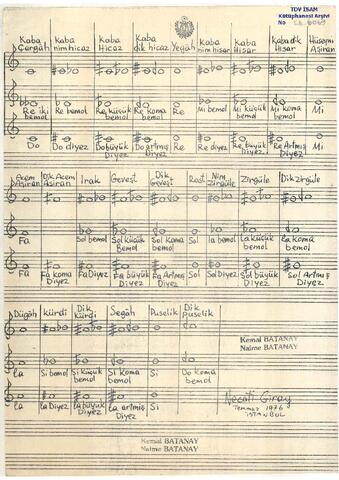 TDV İSAM
Kütüphanesi Arşivi
No
Kaba Çargâh Kaba nimhicaz Kaba Hicaz Kaba dik hicaz Yegâh Kaba nimhisar Kaba Hisar Kabadik Hisar Hüseyni Aşiran
Re iki bemol Re bemol Re küçük bemol Re koma bemol Re Mi bemol Mi küçük bemol Mi koma bemol Mi
Do Do diyez Do büyük Diyez Do artmış Diyez Re Re diyez Re büyük Diyez Re Artmış Diyez Mi
Acem Aşiran Dik Acem Aşiran Irak Geveşt Dik Geveşt Rast Nim Zirgüle Zirgüle Dik zirgüle
Fa Sol bemol Sol küçük bemol Sol koma bemol Sol la bemol La küçük bemol La koma bemol
Fa Fa koma Diyez Fa Diyez Fa büyük Diyez Fa Artmış Diyez Sol Sol Diyez Sol büyük Diyez Sol Artmış Diyez
Dügâh kürdi Dik kürdi Segâh Puselik Dik puselik
la Si bemol Si küçük bemol Si koma bemol Si Do koma bemol
la la Diyez la büyük Diyez la artmış Diyez Si
Kemal BATANAY
Naime BATANAY
Necati Giray
Temmuz 1976
İSTANBUL
Kemal BATANAY
Naime BATANAY